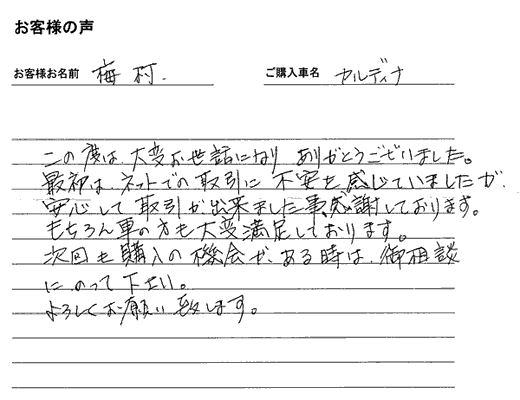 お客様の声
お客様お名前 梅村 ご購入車名 カルディナ
この度は、大変お世話になり ありがとうございました。
最初は、ネットでの取引に 不安を感じていましたが、
安心して取引が出来ました事、感謝しております。
もちろん車の方も大変満足しております。
次回も購入の機会が、ある時は、御相談
にのって下さい。
よろしくお願い致します。